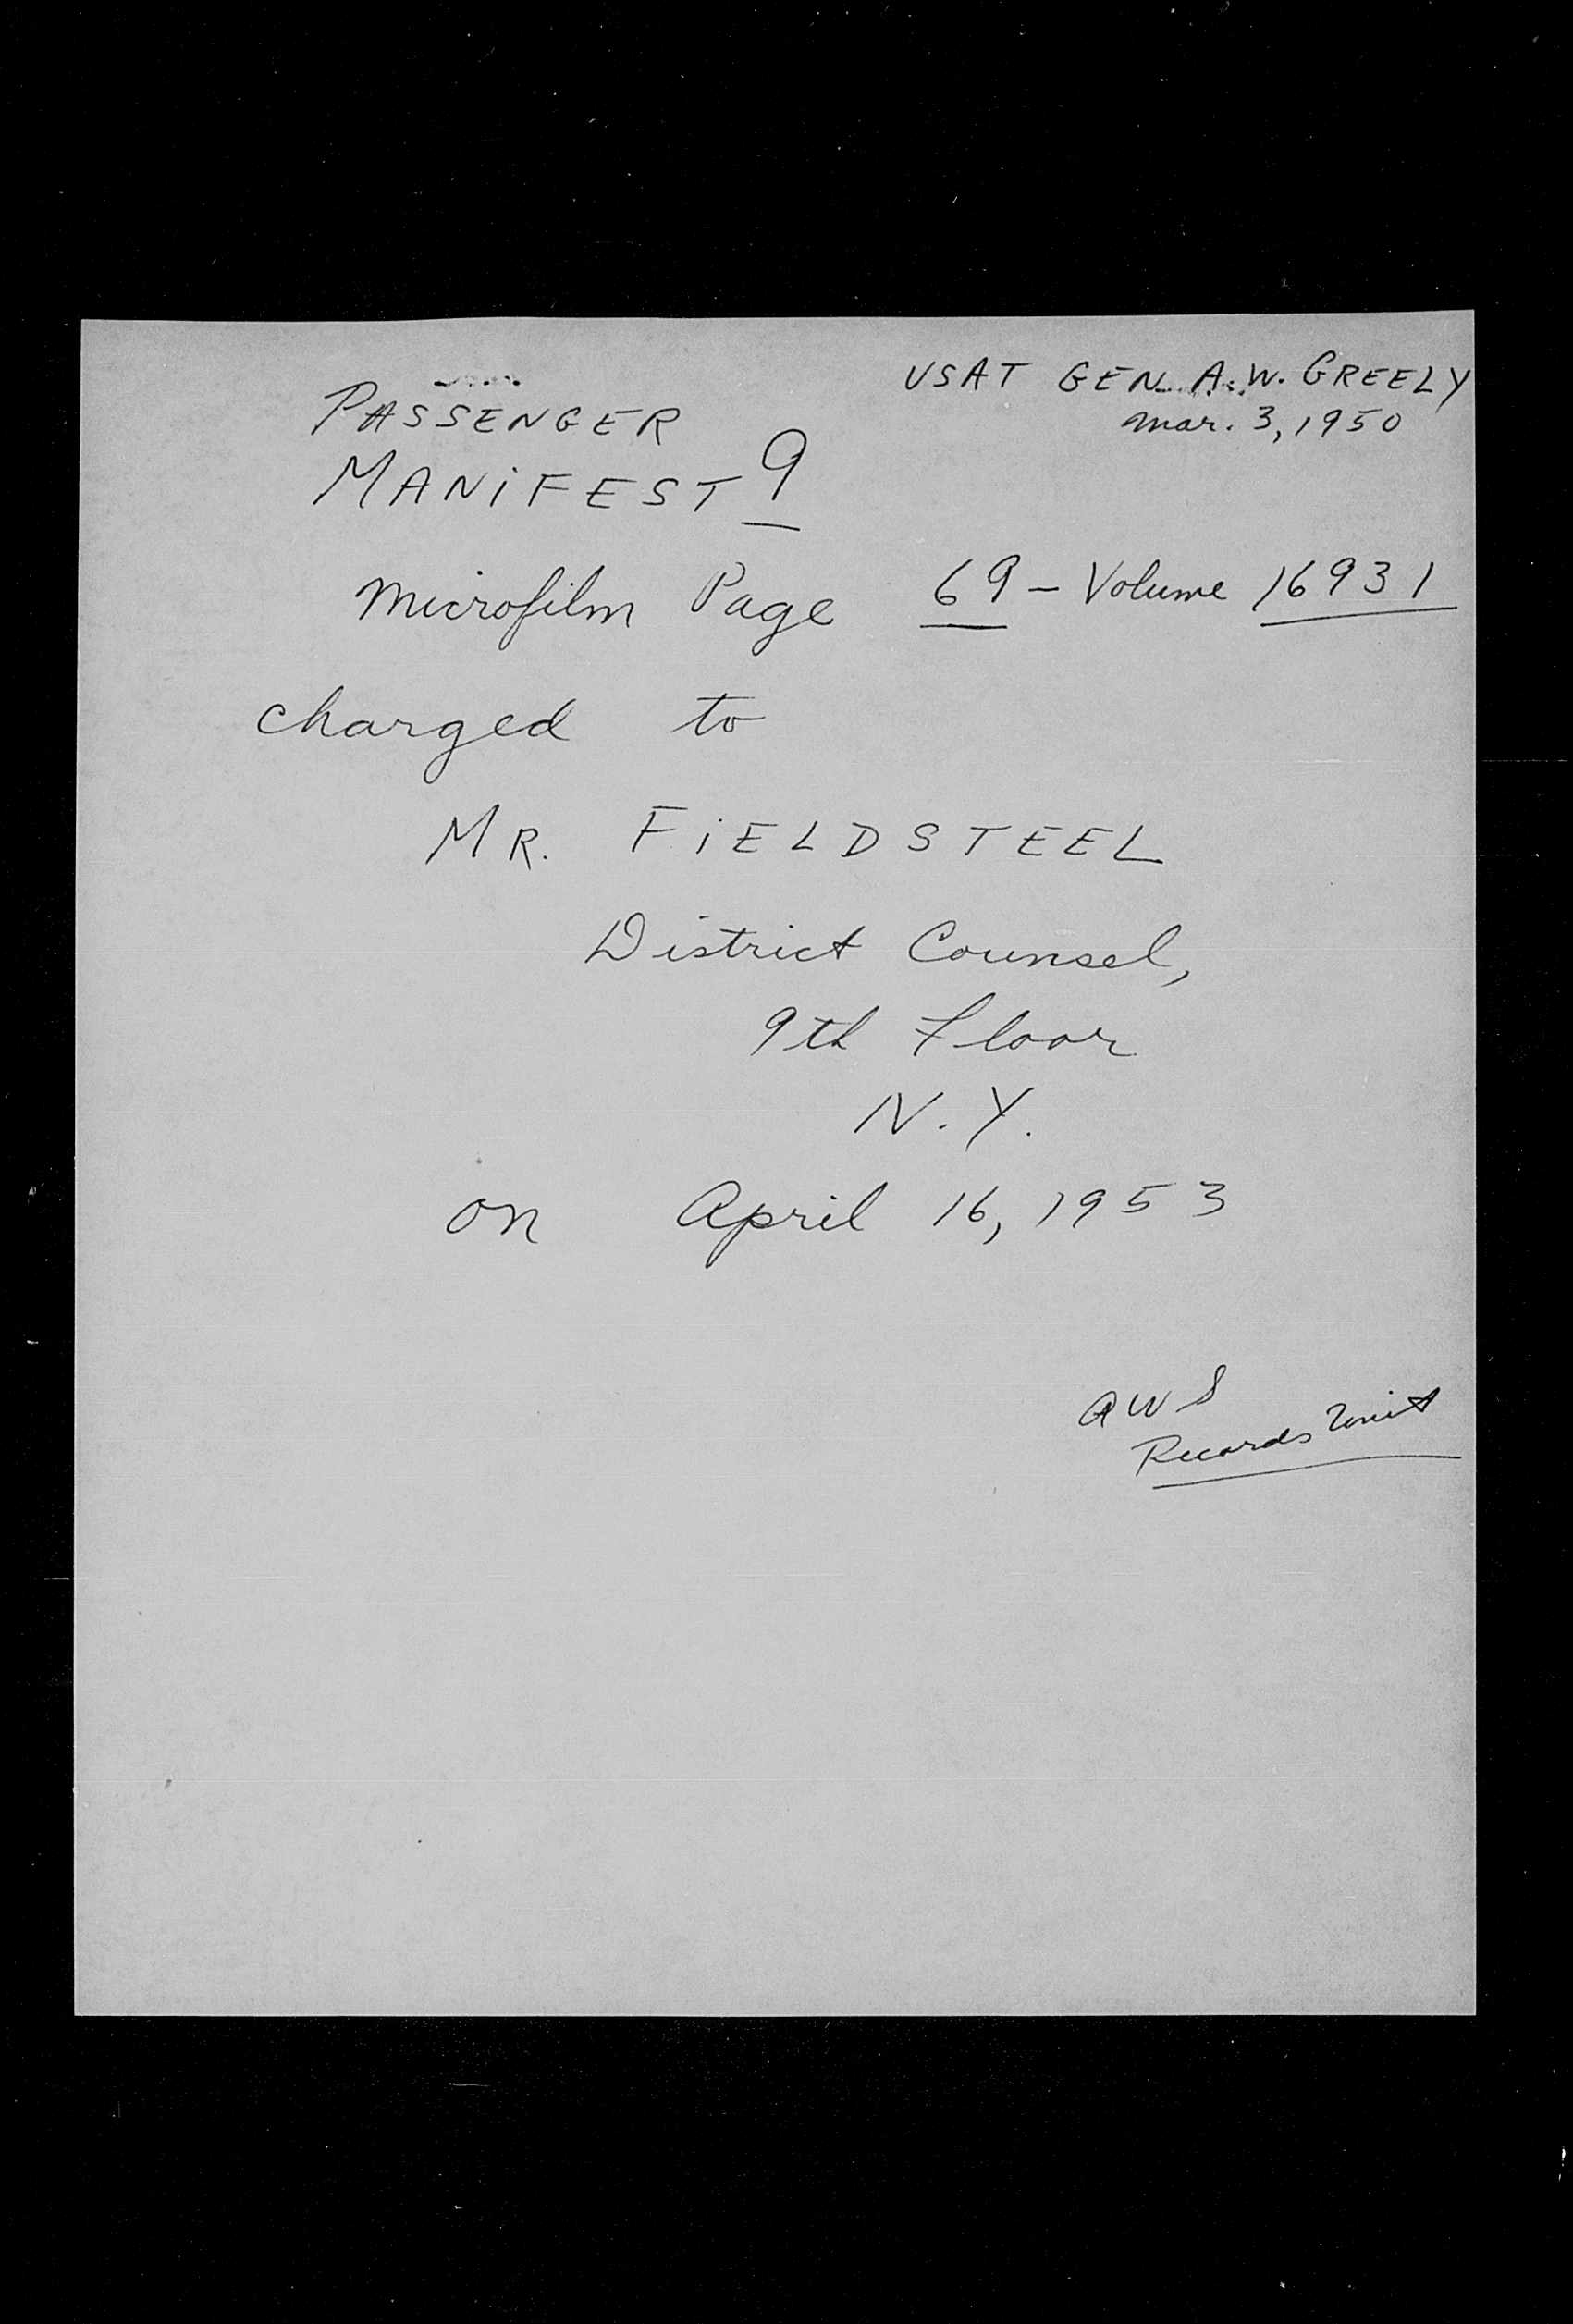 USAT GEN. A.W. GREELY
Mar. 3, 1950
PASSENGER
MANiFEST 9
Microfilm Page 69 - Volume 16931
charged to
MR. FiELDSTEEL
District Counsel,
9th Floor
N.Y.
on April 16, 1953
AWS
Records Unit